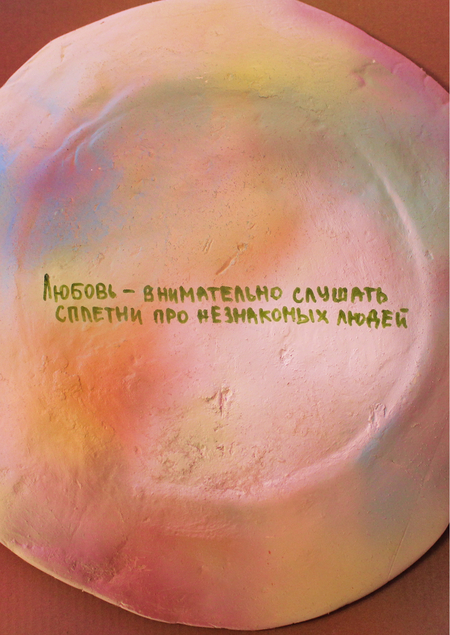 Любовь – внимательно слушать
сплетни про незнакомых людей